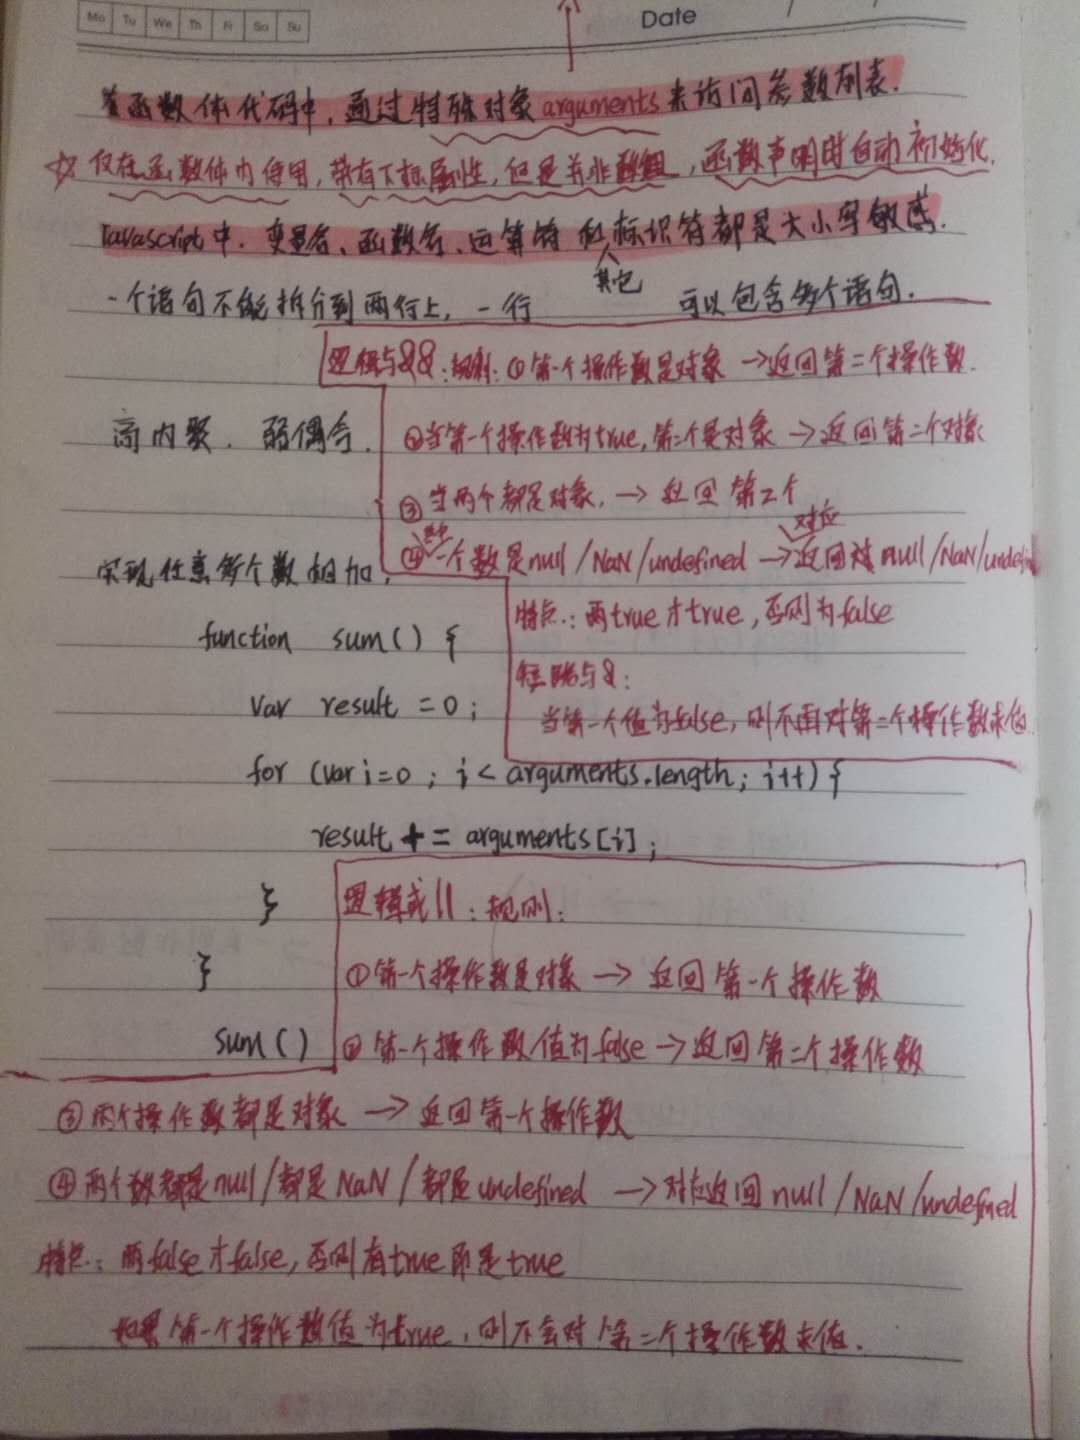 Mo Tu We Th Fr Sa Su
Date
在函数体代码中，通过特殊对象arguments来访问参数列表．
☆仅在函数体内使用，带有下标属性，但是并非数组，函数声明时自动初始化．
Javascript中．变量名、函数名、运算符 和其它标识符都是大小写敏感．
一个语句不能拆分到两行上，一行 可以包含多个语句．
逻辑与&&：规则：①第一个操作数是对象→返回第二个操作数．
高内聚．弱偶合．
②当第一个操作数为true，第二个是对象→返回第二个对象
③当两个都是对象，→返回第二个
实现任意多个数相加，
④其中一个数是null/NaN/undefined→返回对应null/NaN/undefined
特点：两true才true，否则为false
function sum() {
短路与&：
var result =0;
当第一个值为false，则不再对第二个操作数求值
for (var i=0 ; i< arguments.length; i++) {
result += arguments[i];
}
逻辑或||：规则：
}
①第一个操作数是对象→返回第一个操作数
sum()
②第一个操作数值为false→返回第二个操作数
③两个操作数都是对象→返回第一个操作数
④两个数都是null/都是NaN/都是undefined→对应返回null/NaN/undefined
特点：两false才false，否则有true即是true
如果第一个操作数值为true，则不会对第二个操作数求值．